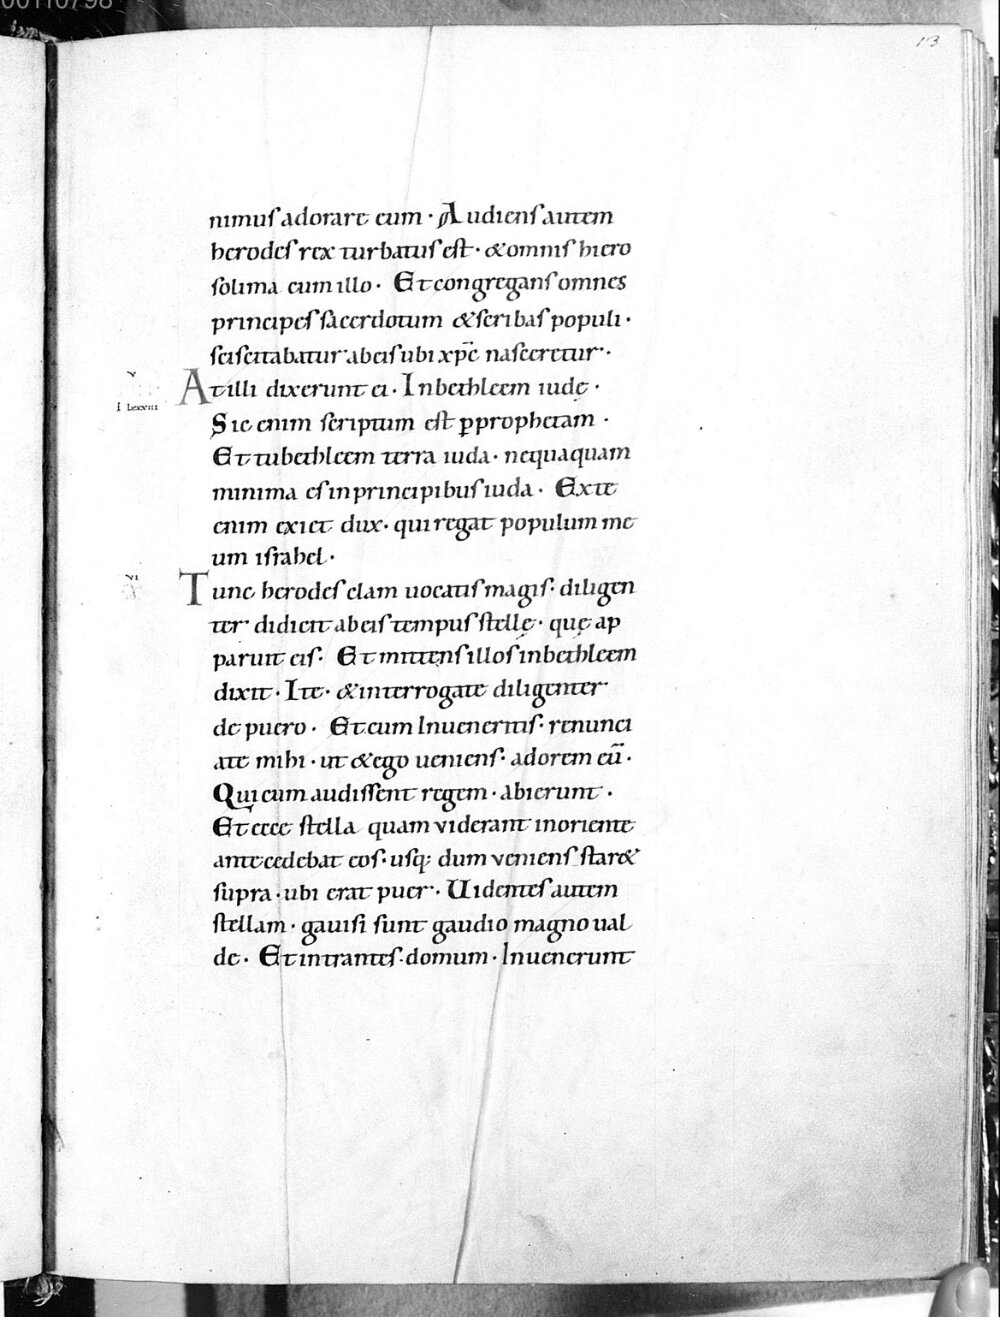 00110798
13
nimus adorare eum · Audiens autem
herodes rex turbatus est · & omnis hiero
solima cum illo · Et congregans omnes
principes sacerdotum & scribas populi ·
sciscitabatur ab eis ubi xp̅c nasceretur ·
v
I Lxxxiii
At illi dixerunt ei · In bethleem iudę ·
Sic enim scriptum est ꝑ prophetam ·
Et tu bethleem terra iuda · nequaquam
minima es in principibus iuda · Ex te
enim exiet dux · qui regat populum me
um israhel ·
vi
Tunc herodes clam uocatis magis · diligen
ter didicit ab eis tempus stellę · quę ap
paruit eis · Et mittens illos in bethleem
dixit · Ite · & interrogate diligenter
de puero · Et cum Inueneritis · renunci
ate mihi · ut & ego ueniens · adorem eū ·
Qui cum audissent regem · abierunt ·
Et ecce stella quam viderant in oriente
antecedebat eos · usq; dum veniens star&
supra · ubi erat puer · Uidentes autem
stellam · gauisi sunt gaudio magno ual
de · Et intrantes · domum · Inuenerunt